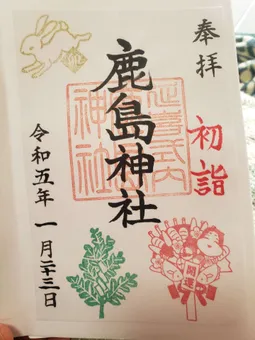 奉拝
初詣
鹿島神社
延喜式内
神社
令和五年 一月二十三日
開運